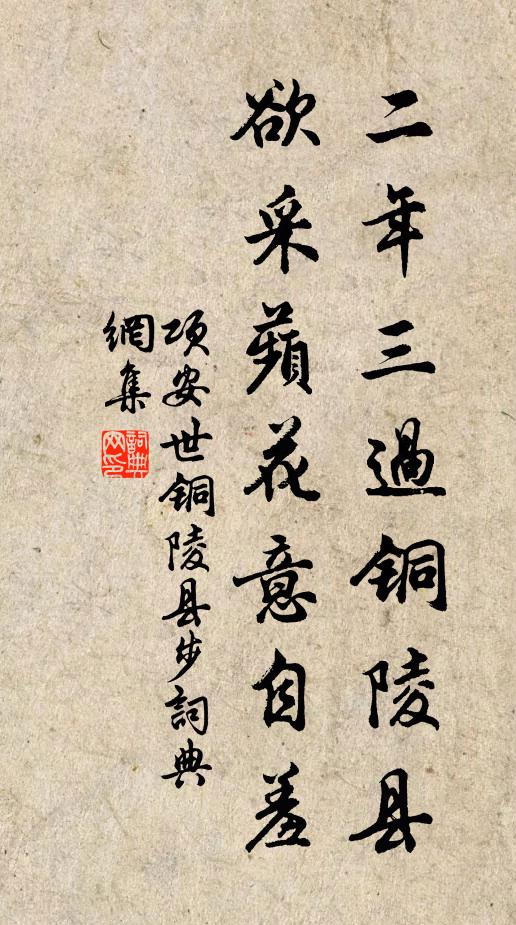 二年三過铜陵县
欲采蘋花意自羞
项安世铜陵县步詞典
網集
詞典
网印